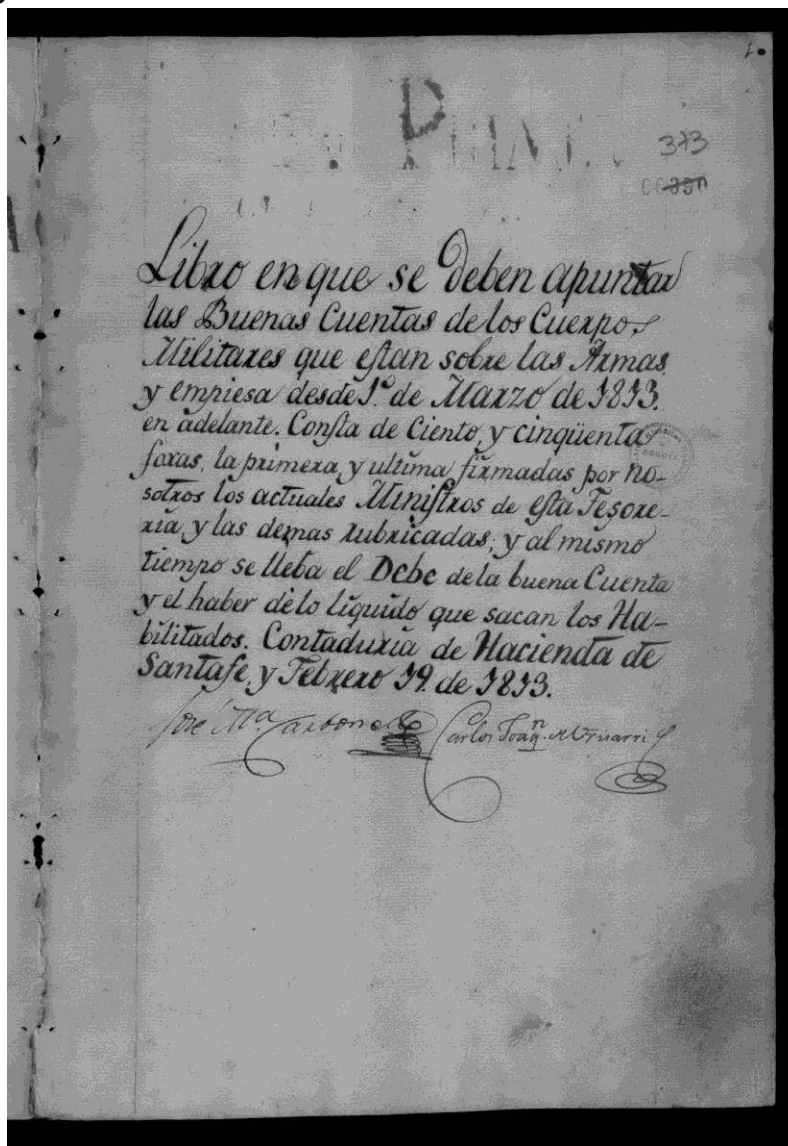 1.
373
00390
Libro en que se deben apuntar
las Buenas Cuentas de los Cuerpos
Militares que estan sobre las Armas,
y empiesa desde 1.º de Marzo de 1813.
en adelante. Consta de Ciento, y cinqüenta
foxas, la primera, y ultima firmadas por no-
sotros los actuales Ministros de esta Tesore-
ria, y las demas rubricadas; y al mismo
tiempo se lleba el Debe de la buena Cuenta
y el haber de lo liquido que sacan los Ha-
bilitados. Contaduria de Hacienda de
Santafe, y Febrero 19. de 1813.
José M.ª Carbonell Carlos Joaq.n